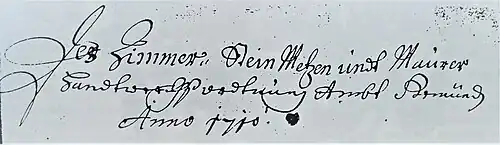 Der Zimmer: Stein Metzen undt Maurer
Handtwerchsordtnung Ambt Gemünd
Anno 1710.